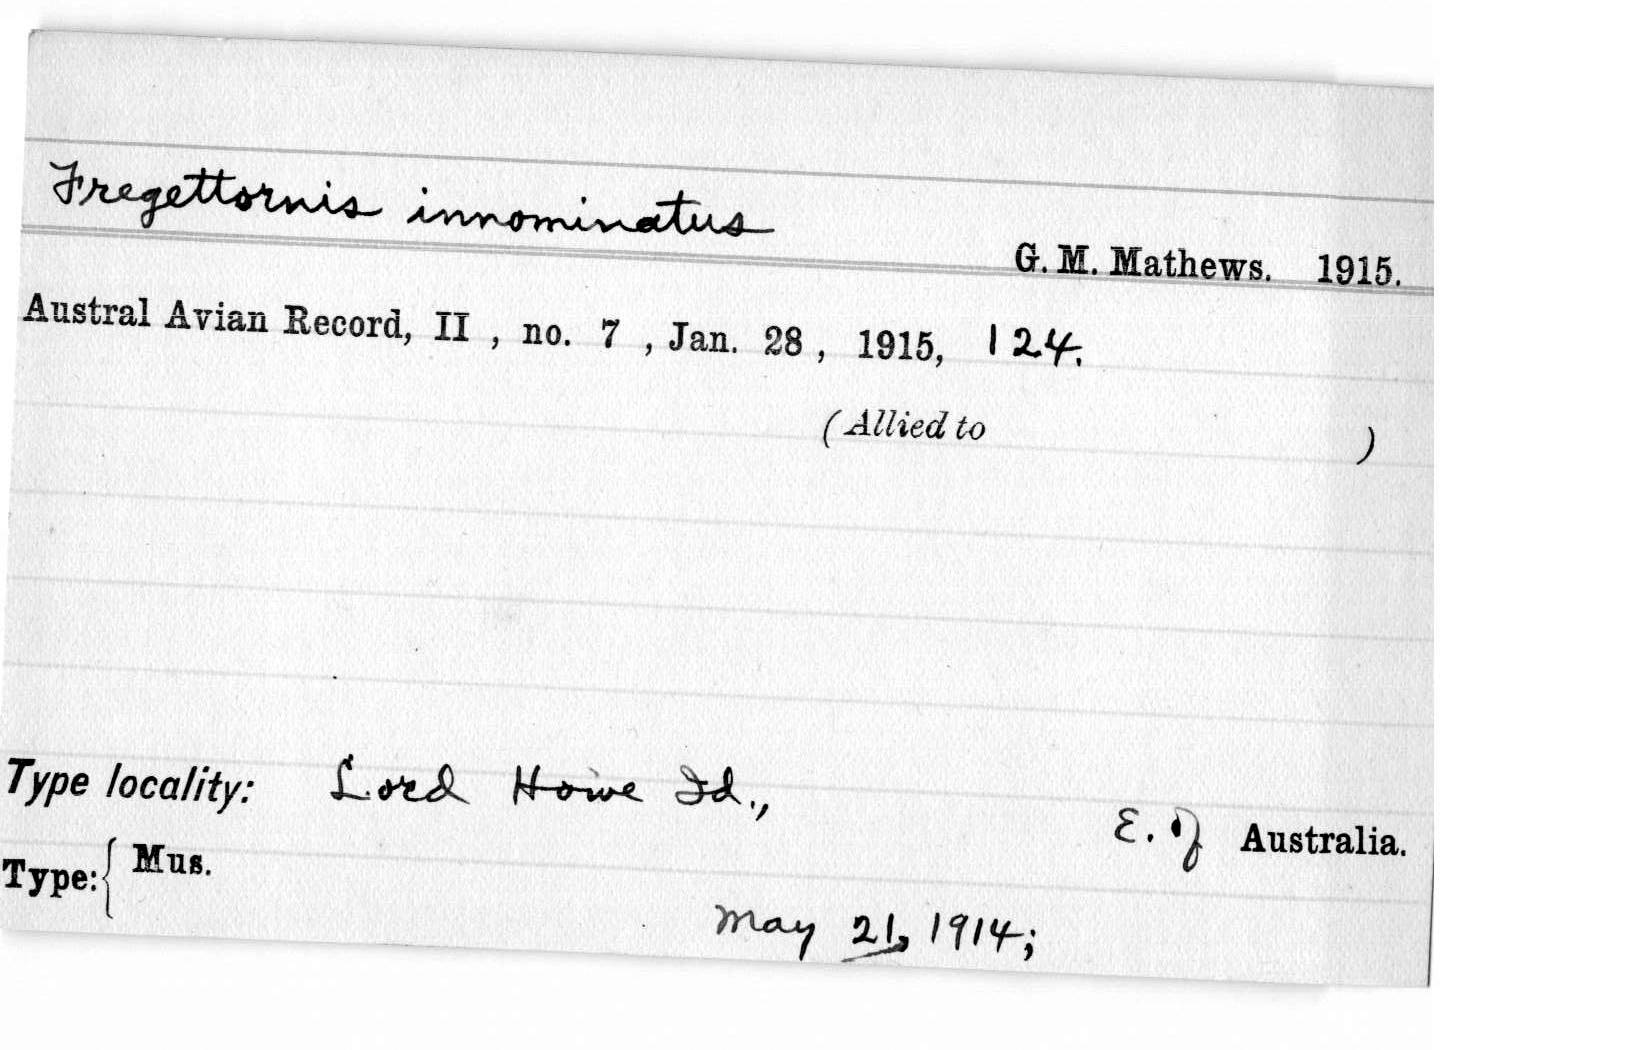 Fregettornis innominatus
G. M. Mathews. 1915.
Austral Avian Record, II , no. 7 , Jan. 28 , 1915, 124.
(Allied to )
Type locality: Lord Howe Id., E. of Australia.
Type: { Mus.
May 21, 1914;